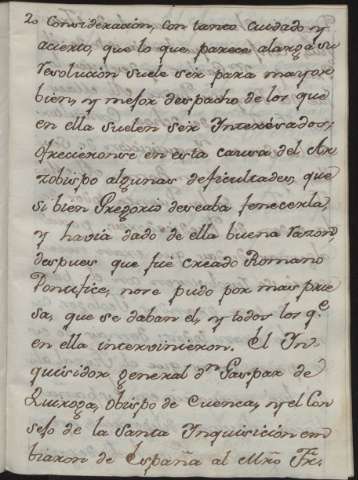 2. Consideración, con tanto cuidado y
acierto, que lo que parece alarga su
resolución suele ser para mayor
bien, y mejor despacho de los que
en ella suelen ser Interésados,
ofreciéronse en esta causa del Ar
zobispo algunas deficultades, que
si bien Gregorio deseaba fenecerla
y havía dado de ella buena razon,
despues que fué creado Romano
Pontifice, nore pudo por mas prie
sa, que se daban el, y todos los q.e
en ella intervinieron. El In
quisidor general d.n Gaspar de
Quiroga, obispo de Cuenca, y el Con
sejo de la Santa Inquisición em
biaron de España al Mro Fr.